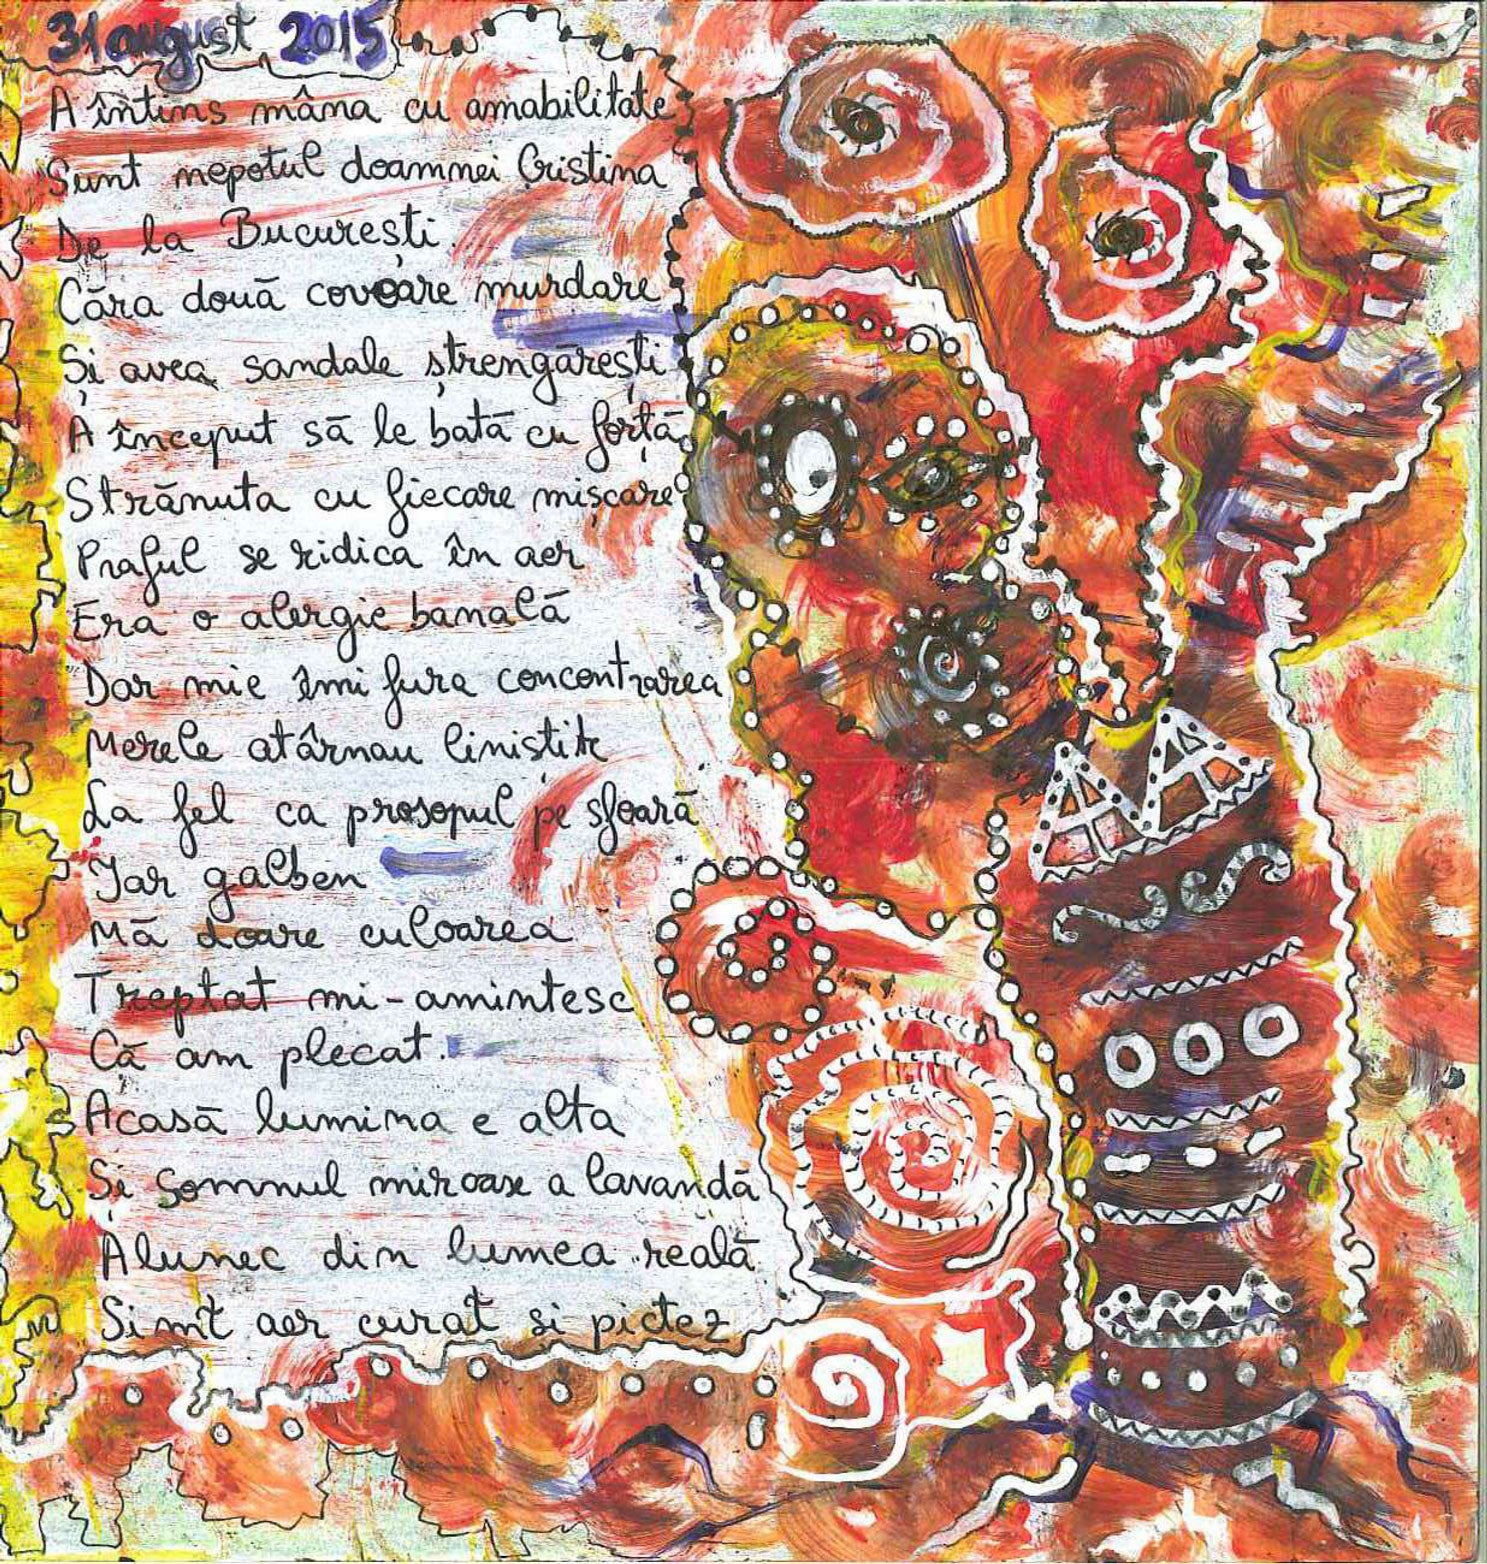 31 august 2015
A întins mâna cu amabilitate
Sunt nepotul doamnei Cristina
De la București.
Căra două covoare murdare
Și avea sandale ștrengărești
A început să le bată cu forță
Strănuta cu fiecare mișcare
Praful se ridica în aer
Era o alergie banală
Dar mie îmi fura concentrarea
Merele atârnau liniștite
La fel ca prosopul pe sfoară
Iar galben
Mă doare culoarea
Treptat mi-amintesc
Că am plecat.
Acasă lumina e alta
Și somnul miroase a lavandă
Alunec din lumea reală
Simt aer curat si pictez